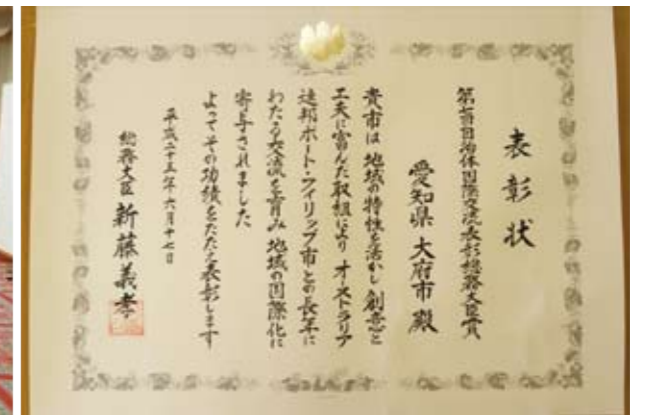 表彰状
第七回自治体国際交流表彰総務大臣賞
愛知県 大府市 殿
貴市は 地域の特性を活かし 創意と
工夫に富んだ取組により オーストラリア
連邦ポート・フィリップ市との長年に
わたる交流を育み 地域の国際化に
寄与されました
よってその功績をたたえ表彰します
平成二十五年六月十七日
総務大臣 新藤義孝